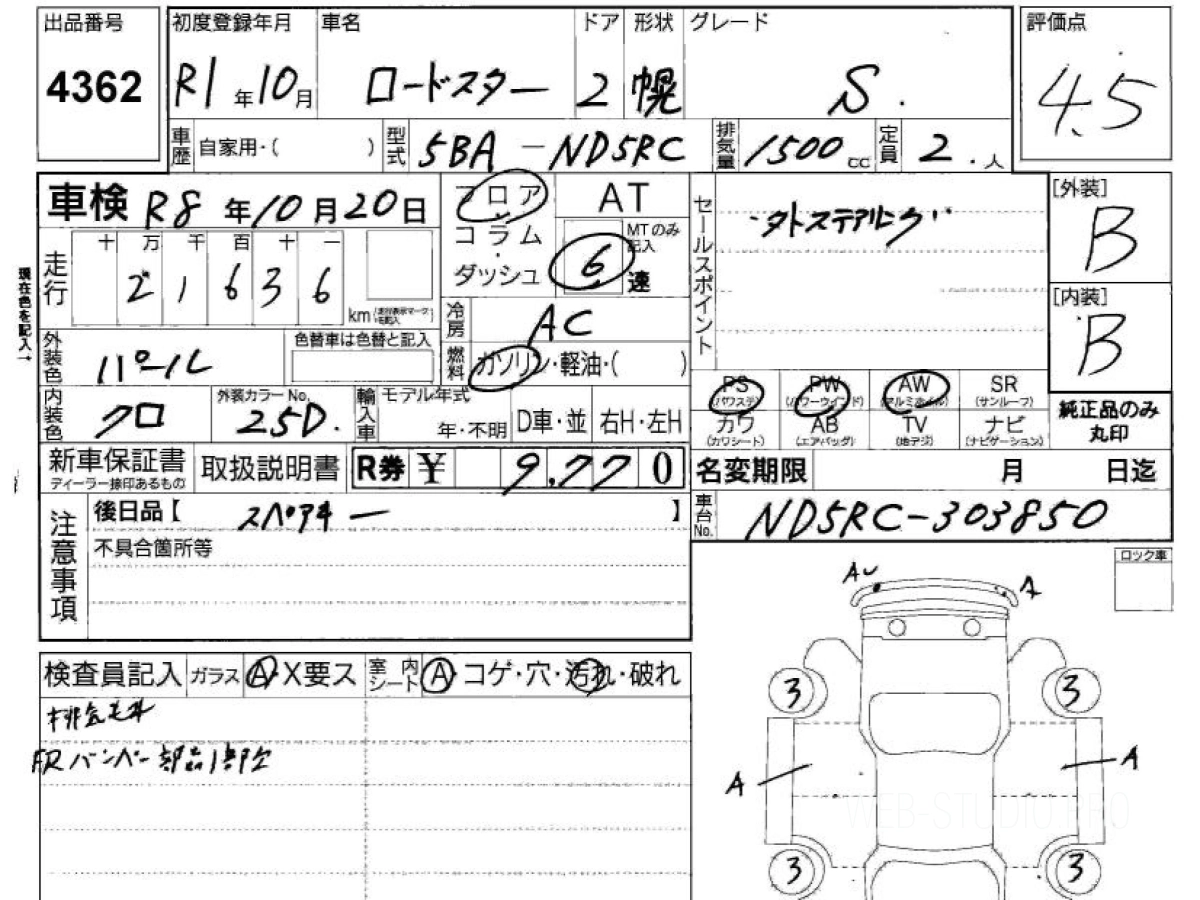 出品番号
4362
初度登録年月
R1年10月
車名
ロードスター
ドア
2
形状
幌
グレード
S.
評価点
4.5
車歴 自家用・( )
型式 5BA-ND5RC
排気量 1500cc
定員 2.人
車検 R8年10月20日
フロア
コラム
ダッシュ
AT
MTのみ記入
6速
セールスポイント
・タトステアリング・
[外装]
B
[内装]
B
現在色を記入→
走行
十 万 千 百 十 一
2 1 6 3 6
km
冷房 AC
燃料 ガソリン・軽油・( )
外装色 パール
色替車は色替と記入
内装色 クロ
外装カラーNo.
25D.
輸入車
モデル年式
年・不明
D車・並
右H・左H
PS
(パワステ)
PW
(パワーウインド)
AW
(アルミホイル)
SR
(サンルーフ)
カワ
(カワシート)
AB
(エアバッグ)
TV
(地デジ)
ナビ
(ナビゲーション)
純正品のみ
丸印
新車保証書
ディーラー捺印あるもの
取扱説明書
R券 ¥ 9,770
名変期限 月 日迄
注意事項
後日品【 スペアキー 】
不具合箇所等
車台No. ND5RC-303850
ロック車
検査員記入
ガラス A・X要ス
室内シート A・コゲ・穴・汚れ・破れ
排気毛牙
FRバンパー部品1部欠
A
A
3
3
A
A
3
3
WEB-STUDIO.PRO